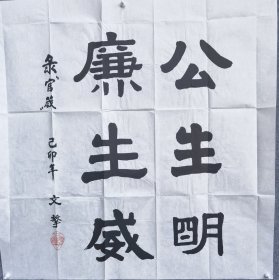 公生明
廉生威
录官箴
己卯年 文擎